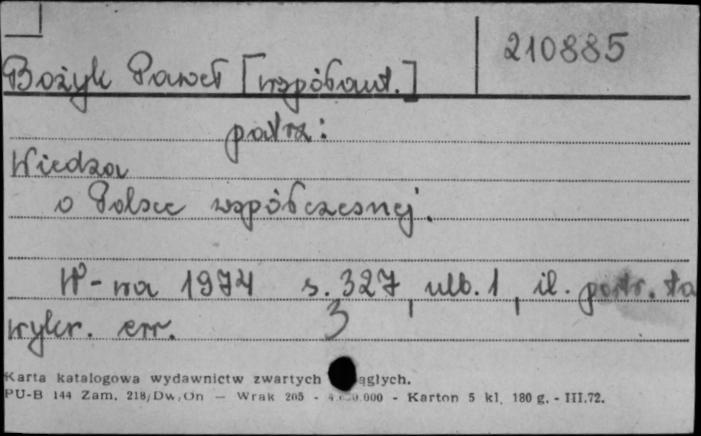 210885
Bożyk Paweł [współaut.]
patrz:
Wiedza
o Polsce współczesnej.
W-wa 1974 s. 327, ulb. 1, il. portr. ta
wykr. err. 3
Karta katalogowa wydawnictw zwartych ągłych.
PU-B 144 Zam. 218/Dw,On — Wrak 205 - .000 - Karton 5 kl. 180 g. - III.72.